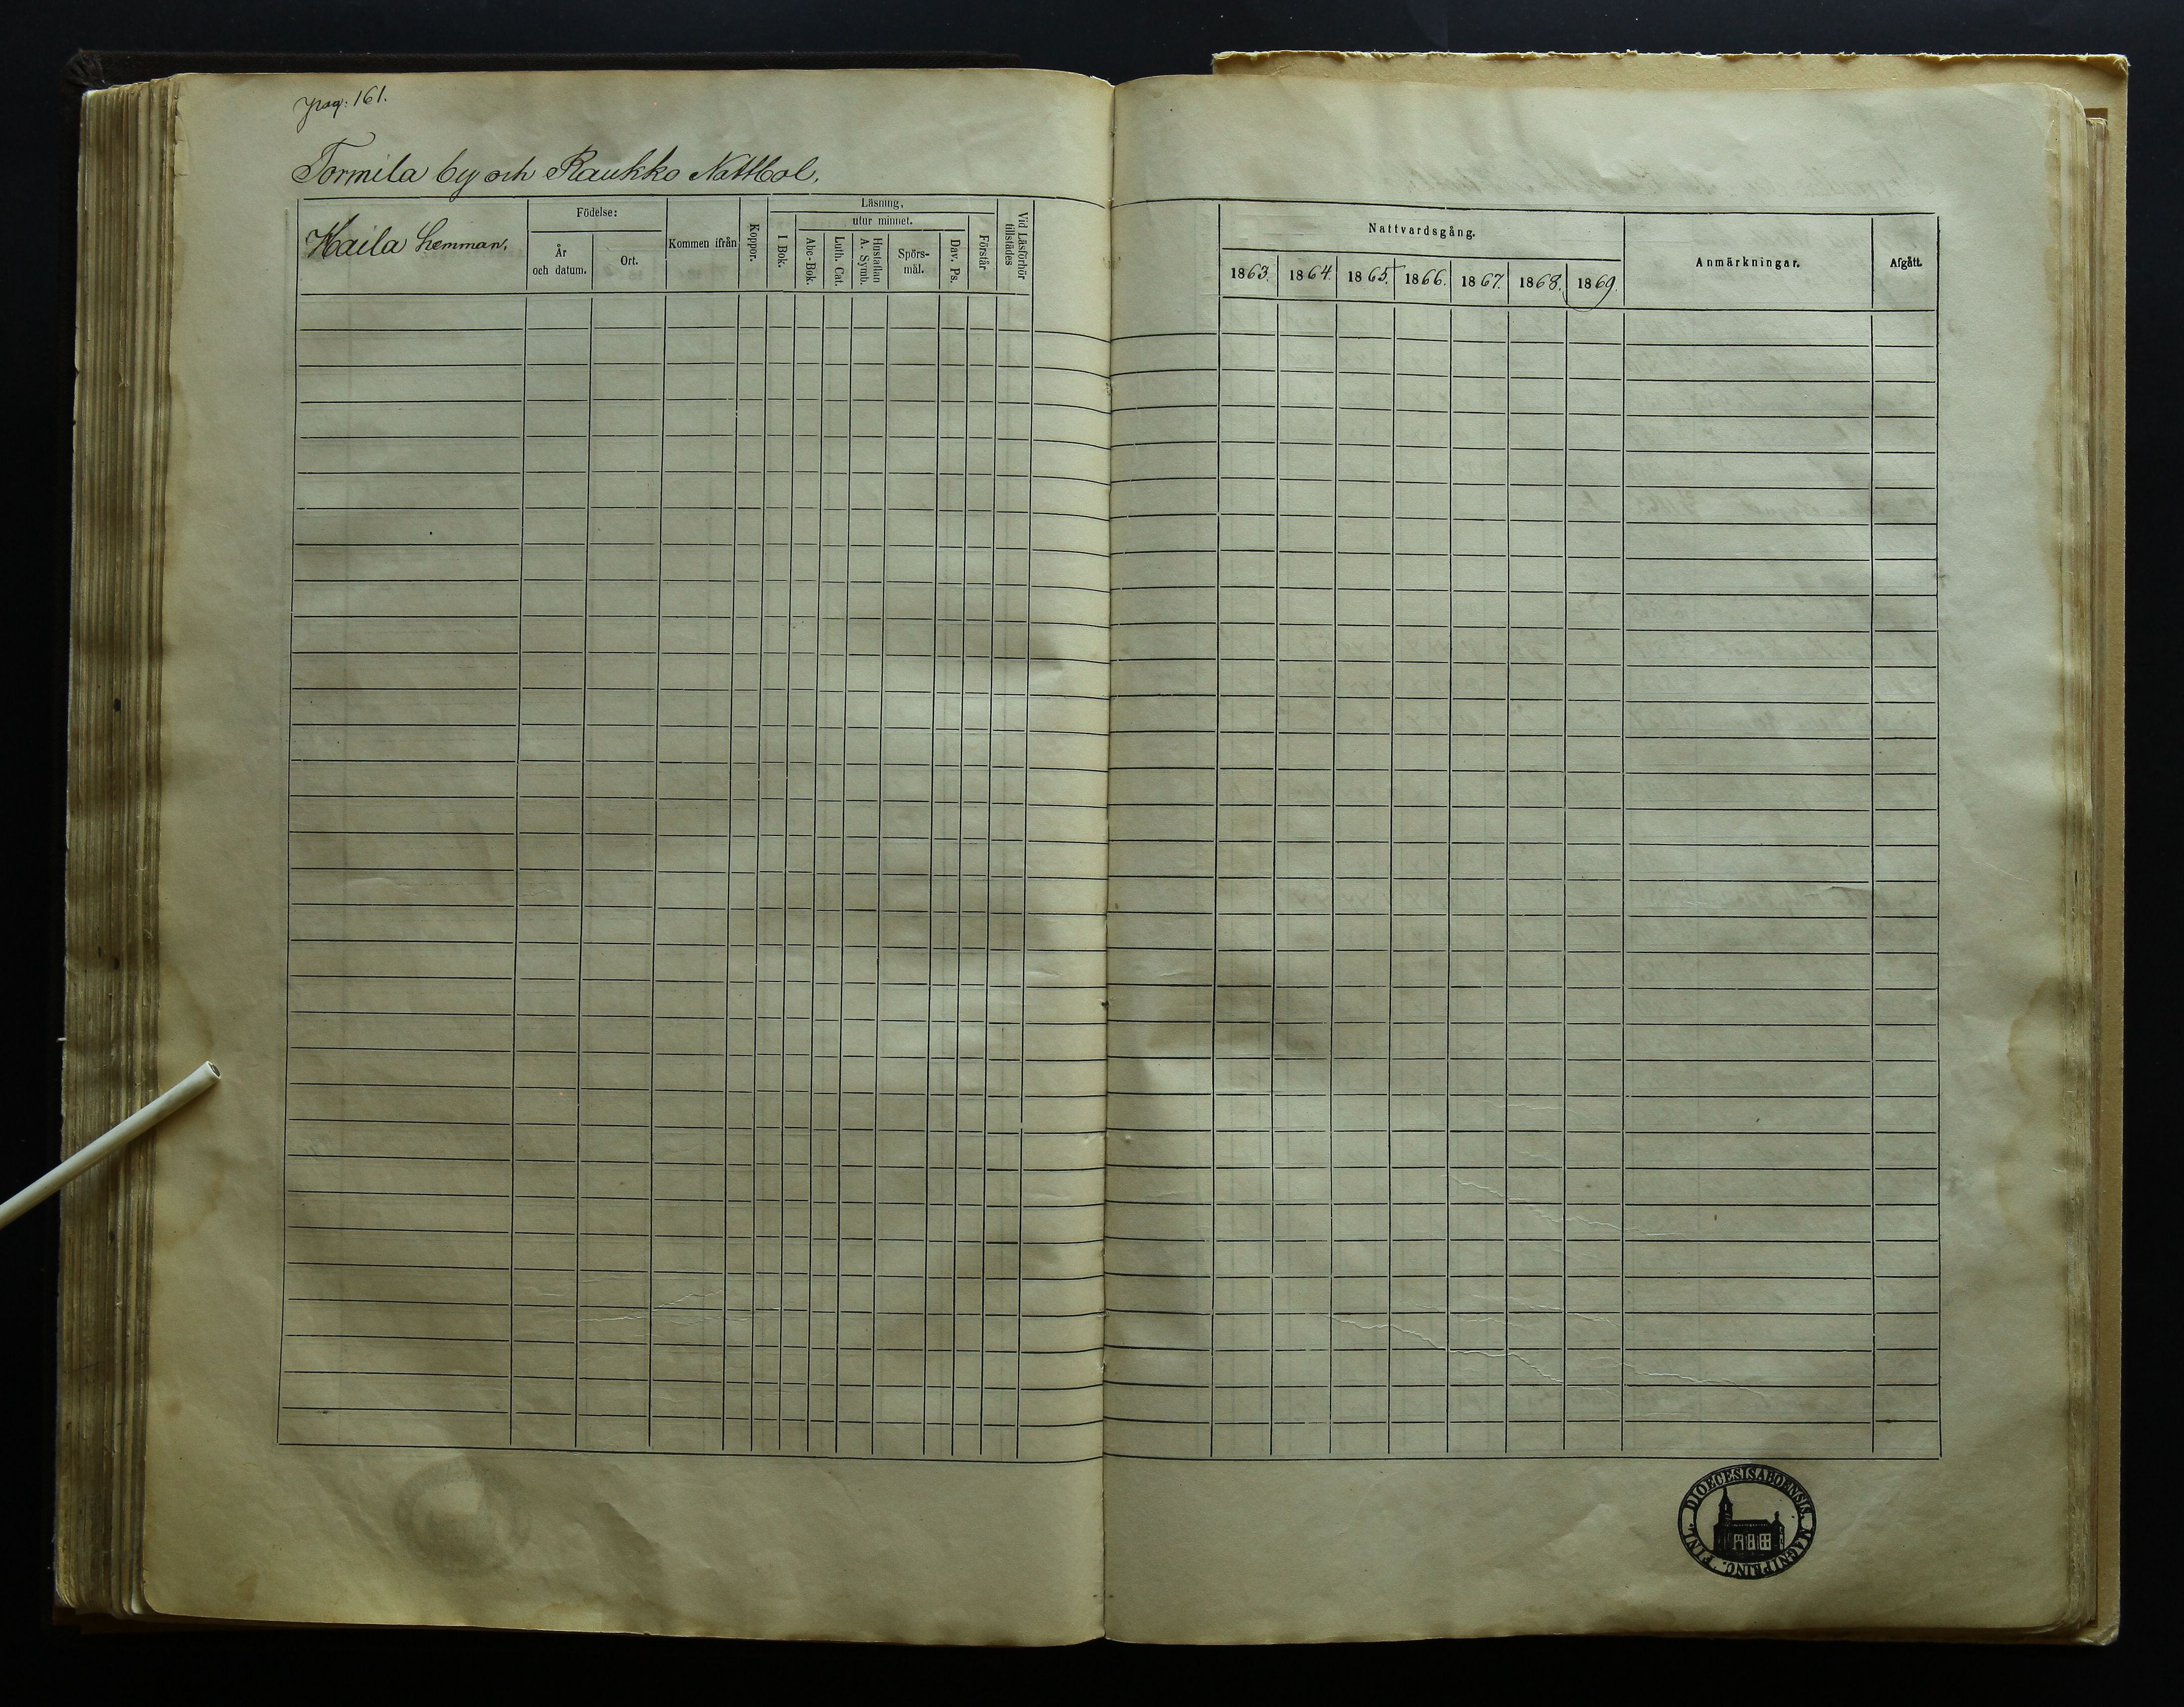 pag: 161.
Tormila by och Raukko Nattbol.
Haila hemman.
Födelse:
År
och datum.
Ort.
Kommen ifrån
Koppor.
Läsning,
utur minnet.
I Bok.
Abc-Bok.
Luth. Cat.
Hustaflan
A. Symb.
Spörs-
mål.
Dav. Ps.
Förstår
Vid Läsförhör
tillstädes
Nattvardsgång.
1863. 1864. 1865. 1866. 1867. 1868. 1869.
Anmärkningar.
Afgått.
DIOECESIS ABOENSIS. MAGNI PRINC. FINL.